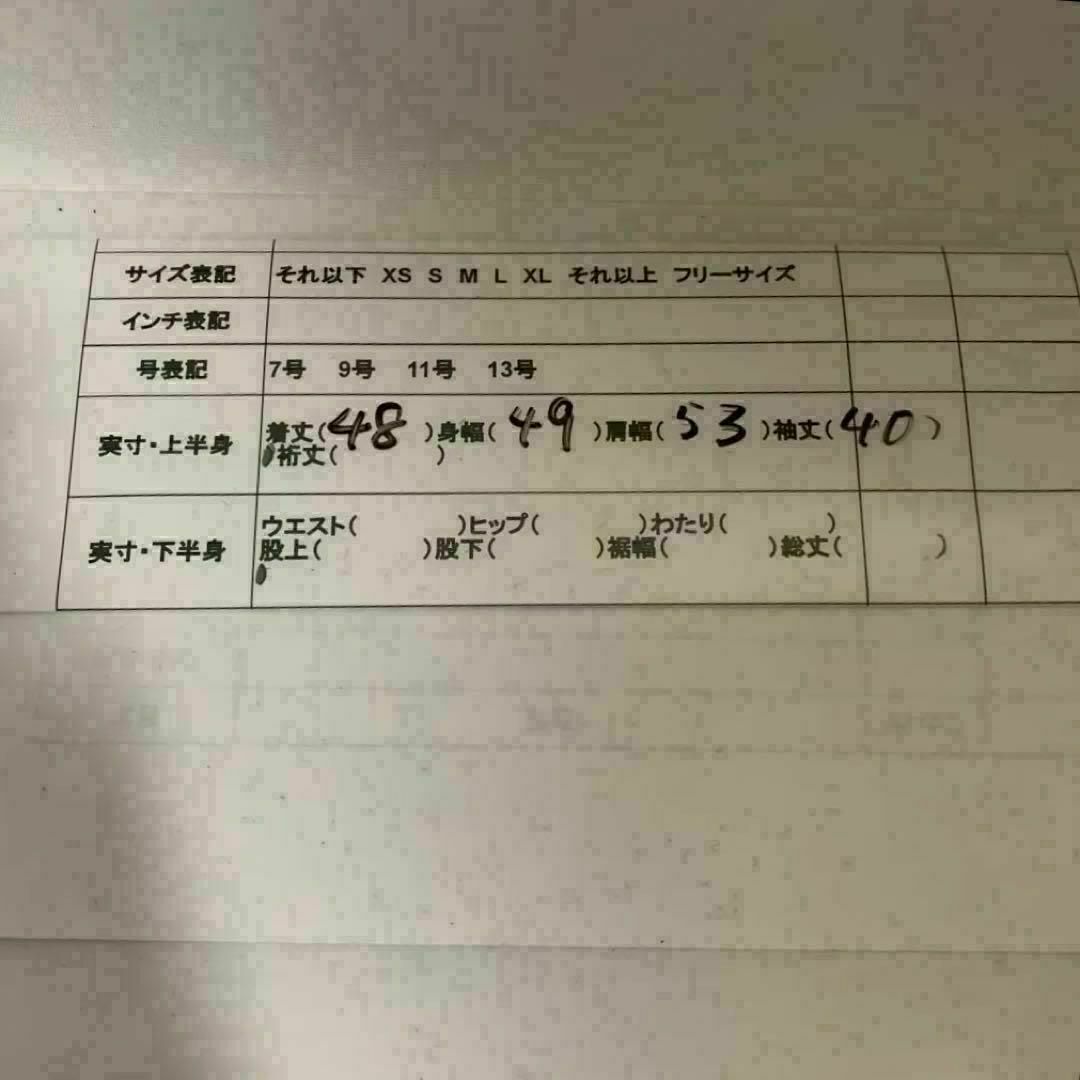 サイズ表記 それ以下 XS S M L XL それ以上 フリーサイズ
インチ表記
号表記 7号 9号 11号 13号
実寸・上半身 着丈(48)身幅(49)肩幅(53)袖丈(40)
裄丈( )
実寸・下半身 ウエスト( )ヒップ( )わたり( )
股上( )股下( )裾幅( )総丈( )